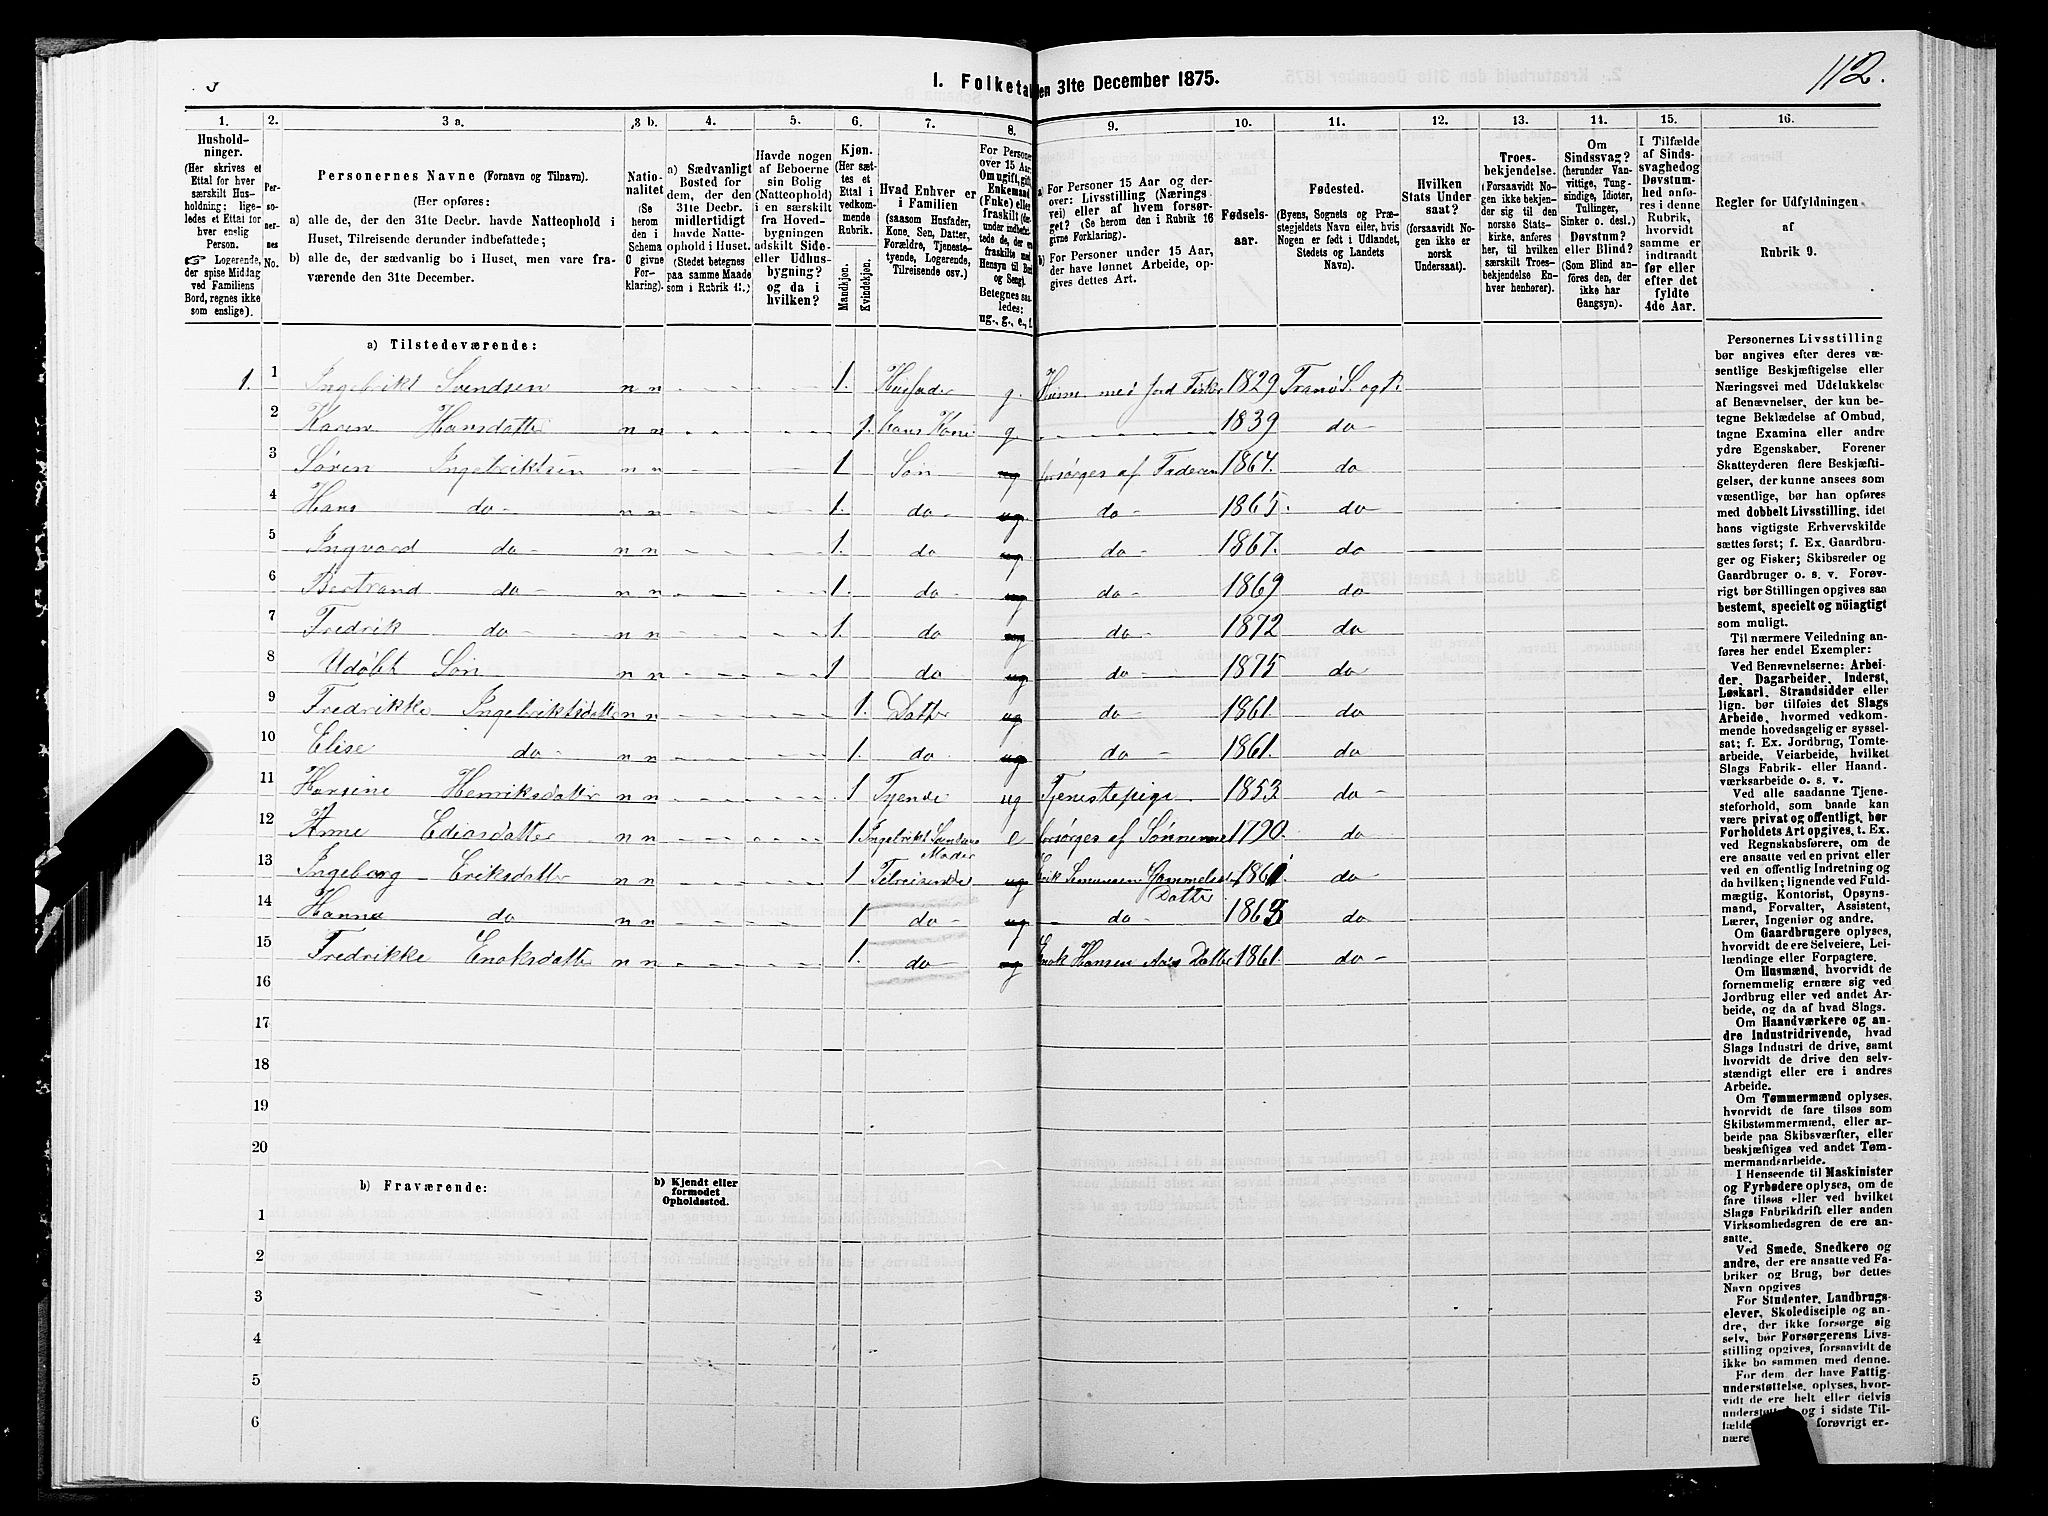 I. Folketa en 31te December 1875.
112.
1. 2. 3 a. 3 b. 4. 5. 6. 7. 8. 9. 10. 11. 12. 13. 14. 15. 16.
Hushold-
ninger.
(Her skrives et
Ettal for hver
særskilt Hus-
holdning; lige-
ledes et Ettal for
hver enslig
Person.
☞ Logerende,
der spise Middag
ved Familiens
Bord, regnes ikke
som enslige).
Per-
so-
ner-
nes
No.
Personernes Navne (Fornavn og Tilnavn).
(Her opføres:
a) alle de, der den 31te Decbr. havde Natteophold i
Huset, Tilreisende derunder indbefattede;
b) alle de, der sædvanlig bo i Huset, men vare fra-
værende den 31te December.
Natio-
nalitet
(Se
herom
den i
Schema
C givne
For-
klaring).
a) Sædvanligt
Bosted for
dem, der den
31te Decbr.
midlertidigt
havde Natte-
ophold i Huset.
(Stedet betegnes
paa samme Maade
som i Rubrik 11.)
Havde nogen
af Beboerne
sin Bolig
(Natteophold)
i en særskilt
fra Hoved-
bygningen
adskilt Side-
eller Udhus-
bygning?
og da i
hvilken?
Kjøn.
(Her sæt-
tes et
Ettal i
vedkom-
mende
Rubrik.)
Mandkjøn.
Kvindekjøn.
Hvad Enhver er
i Familien
(saasom Husfader,
Kone, Søn, Datter,
Forældre, Tjeneste-
tyende, Logerende,
Tilreisende osv.)
For Personer
over 15 Aar:
Om ugift, gift,
Enkemand
(Enke) eller
fraskilt
Betegnes saa-
ledes:
ug., g., e., f.
a) For Personer 15 Aar og der-
over: Livsstilling (Nærings-
vei) eller af hvem forsør-
get? (Se herom den i Rubrik 16
givne Forklaring).
b) For Personer under 15 Aar,
der have lønnet Arbeide, op-
gives dettes Art.
Fødsels-
aar.
Fødested.
(Byens, Sognets og Præ-
stegjeldets Navn eller, hvis
Nogen er født i Udlandet,
Stedets og Landets
Navn).
Hvilken
Stats Under-
saat?
(forsaavidt No-
gen ikke er
norsk
Undersaat).
Troes-
bekjendelse.
(Forsaavidt No-
gen ikke bekjen-
der sig til den
norske Stats-
kirke, anføres
her, til hvilken
særskilt Troes-
bekjendelse En-
hver henhører).
Om
Sindssvag?
(herunder Van-
vittige, Tung-
sindige, Idioter,
Tullinger,
Sinker o. desl.)
Døvstum?
eller Blind?
(Som Blind an-
føres den, der
ikke har
Gangsyn).
I Tilfælde
af Sinds-
svaghed og
Døvstum-
hed anfø-
res i denne
Rubrik,
hvorvidt
samme er
indtraadt
før eller
efter det
fyldte
4de Aar.
Regler for Udfyldningen
af
Rubrik 9.
a) Tilstedeværende:
1. 1 Ingebrikt Svendsen n n 1. Husfader g. Husm. med Jord Fisker 1829 Tranø S. og P.
2 Karen Hansdatter n n 1. hans Kone g. 1839 do
3 Søren Ingebriktsen n n 1 Søn ug forsørges af Faderen 1864. do
4 Hans do n n 1. do ug. do 1865. do
5 Ingvard do n n 1. do ug do 1867. do
6 Bertrand do n n 1. do ug do 1869 do
7 Fredrik do n n 1. do ug do 1872 do
8 Udøbt Søn n n 1 do ug do 1875 do
9 Fredrikke Ingebriktsdatter n n 1. Datter ug do 1861. do
10 Elise do n n 1. do ug do 1861. do
11 Hansine Henriksdatter n n 1 Tyende ug Tjenestepige 1853 do
12 Anne Ediasdatter n n 1 Ingebrikt Svendsens Moder e forsørges af Sønnen 1790. do
13 Ingeborg Eriksdatter n n 1 Tilreisende ug Erik Datter 1861. do
14 Hanna do n n 1 do ug do 1863 do
15 Fredrikke Enoksdatter n n 1. do ug Enok Hansen Datter 1861. do
16
17
18
19
20
b) Fraværende:
b) Kjendt eller
formodet
Opholdssted.
1
2
3
4
5
6
Personernes Livsstilling
bør angives efter deres væ-
sentlige Beskjæftigelse eller
Næringsvei med Udelukkelse
af Benævnelser, der kun be-
tegne Beklædelse af Ombud,
tagne Examina eller andre
ydre Egenskaber. Forener
Skatteyderen flere Beskjæfti-
gelser, der kunne ansees som
væsentlige, bør han opføres
med dobbelt Livsstilling, idet
hans vigtigste Erhvervskilde
sættes først; f. Ex. Gaardbru-
ger og Fisker; Skibsreder og
Gaardbruger o. s. v. Forøv-
rigt bør Stillingen opgives saa
bestemt, specielt og nöiagtigt
som muligt.
Til nærmere Veiledning an-
føres her endel Exempler:
Ved Benævnelserne: Arbei-
der, Dagarbeider, Inderst,
Løskarl, Strandsidder eller
lign. bør tilføies det Slags
Arbeide, hvormed vedkom-
mende hovedsagelig er syssel-
sat; f. Ex. Jordbrug, Tomte-
arbeide, Veiarbeide, hvilket
Slags Fabrik- eller Haand-
værksarbeide o. s. v.
Ved alle saadanne Tjene-
steforhold, som baade kan
være privat og offentligt, bør
Forholdets Art opgives, t. Ex.
ved Regnskabsførere, om de
ere ansatte ved en privat eller
ved en offentlig Indretning og
da hvilken; lignende ved Fuld-
mægtig, Kontorist, Opsyns-
mand, Forvalter, Assistent,
Lærer, Ingeniør og andre.
Om Gaardbrugere oplyses,
hvorvidt de ere Selveiere, Lei-
lændinge eller Forpagtere.
Om Husmænd, hvorvidt de
fornemmelig ernære sig ved
Jordbrug eller ved andet Ar-
beide, og da af hvad Slags.
Om Haandværkere og an-
dre Industridrivende, hvad
Slags Industri de drive, samt
hvorvidt de drive den selv-
stændigt eller ere i andres
Arbeide.
Om Tømmermænd oplyses,
hvorvidt de fare tilsøs som
Skibstømmermænd, eller ar-
beide paa Skibsværfter, eller
beskjæftiges ved andet Tøm-
mermandsarbeide.
I Henseende til Maskinister
og Fyrbødere oplyses, om de
fare tilsøs eller ved hvilket
Slags Fabrikdrift eller anden
Virksomhedsgren de ere an-
satte.
Ved Smede, Snedkere og
andre, der ere ansatte ved Fa-
briker og Brug, bør dettes
Navn opgives
For Studenter, Landbrugs-
elever, Skoledisciple og an-
dre, der ikke forsørge sig
selv, bør Forsørgerens Livs-
stilling opgives, forsaavidt de
ikke bo sammen med denne.
For dem, der have Fattig-
understøttelse, oplyses, hvor-
vidt de ere helt eller delvis
og i sidste Til-
forøvrigt er-
nære